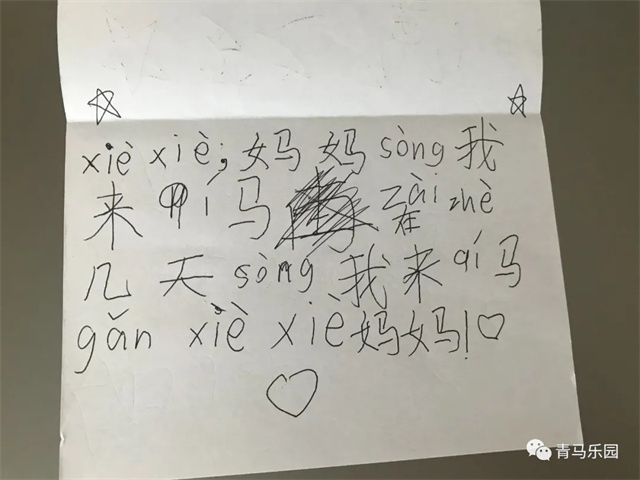 xiè xiè,妈妈sòng我
来qí马 在zài zhè
几天sòng我来qí马
gǎn xiè xiè妈妈!
青马乐园